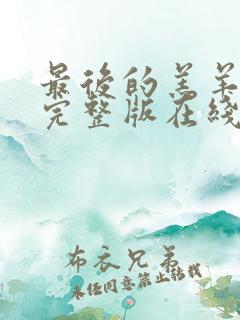 最后的羔羊
完整版在线
布衣兄弟
未经同意禁止转载